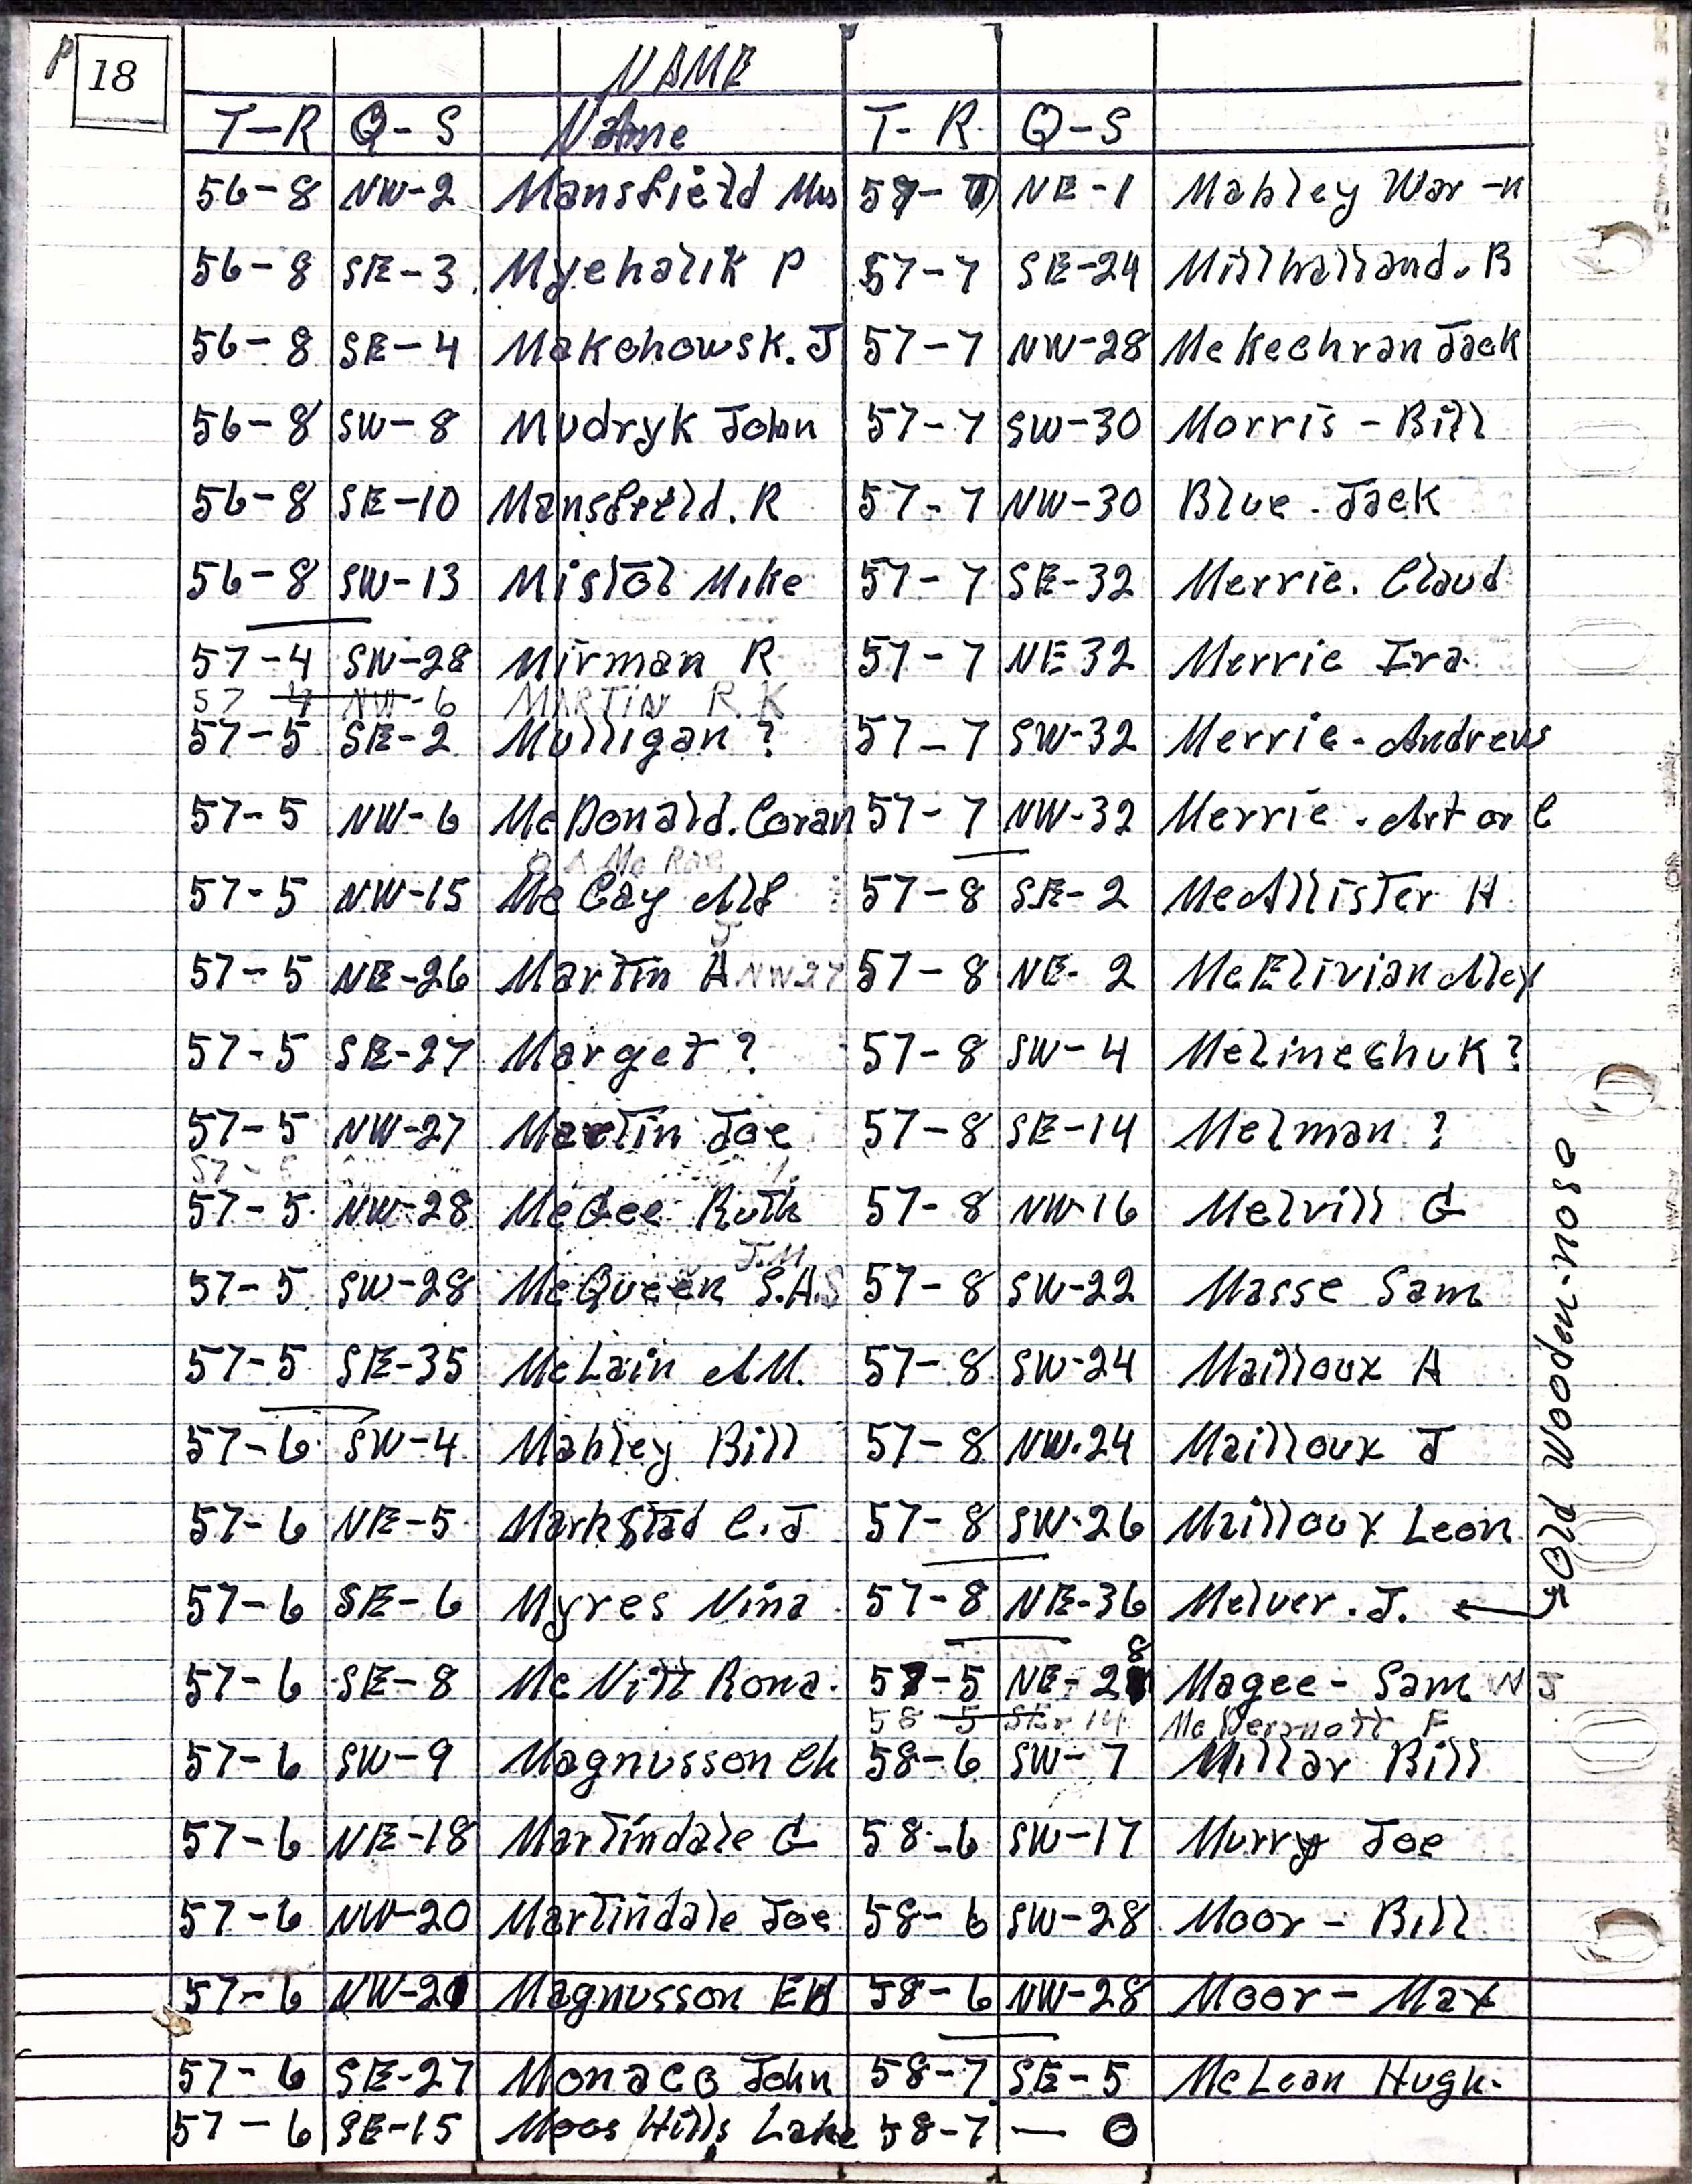 P 18
NAME
T-R Q-S Name T-R. Q-S
56-8 NW-2 Mansfield Mrs 57-7 NE-1 Mabley War-n
56-8 SE-3 Myehalik P 57-7 SE-24 Millhalland.B
56-8 SE-4 Makohowsk.J 57-7 NW-28 McKechran Jack
56-8 SW-8 Mudryk John 57-7 SW-30 Morris-Bill
56-8 SE-10 Mansfield.R 57-7 NW-30 Blue.Jack
56-8 SW-13 Mistol Mike 57-7 SE-32 Merrie.Claud
57-4 SW-28 Mirman R 57-7 NE 32 Merrie Ira.
57 4 NW-6 MARTIN R.K
57-5 SE-2 Mulligan ? 57-7 SW-32 Merrie-Andrews
57-5 NW-6 McDonald.Coran 57-7 NW-32 Merrie.Art or C
Mc Rae
57-5 NW-15 McCay Alf 57-8 SE-2 McAllister H
J
57-5 NE-26 Martin A NW27 57-8 NE-2 McElivian Alex
57-5 SE-27 Marget ? 57-8 SW-4 Melinechuk ?
57-5 NW-27 Martin Joe 57-8 SE-14 Melman ?
57-5
57-5 NW-28 McGee Ruth 57-8 NW-16 Melvill G
J.M
57-5 SW-28 McQueen S.A.S 57-8 SW-22 Masse Sam
57-5 SE-35 McLain A M. 57-8 SW-24 Mailloux A
57-6 SW-4 Mabley Bill 57-8 NW-24 Mailloux J
57-6 NE-5 Markstad C.J 57-8 SW-26 Mailloux Leon
57-6 SE-6 Myres Nina 57-8 NE-36 McIver.J.
Old Wooden-nose
57-6 SE-8 McNitt Rona. 58-5 NE-28 Magee-Sam W J
58 5 14 McDermott F
57-6 SW-9 Magnusson Ch 58-6 SW-7 Millar Bill
57-6 NE-18 Martindale G 58-6 SW-17 Murry Joe
57-6 NW-20 Martindale Joe 58-6 SW-28 Moor-Bill
57-6 NW-21 Magnusson Ed 58-6 NW-28 Moor-Max
57-6 SE-27 Monaco John 58-7 SE-5 McLean Hugh.
57-6 SE-15 Moos Hills Lake 58-7 — 0